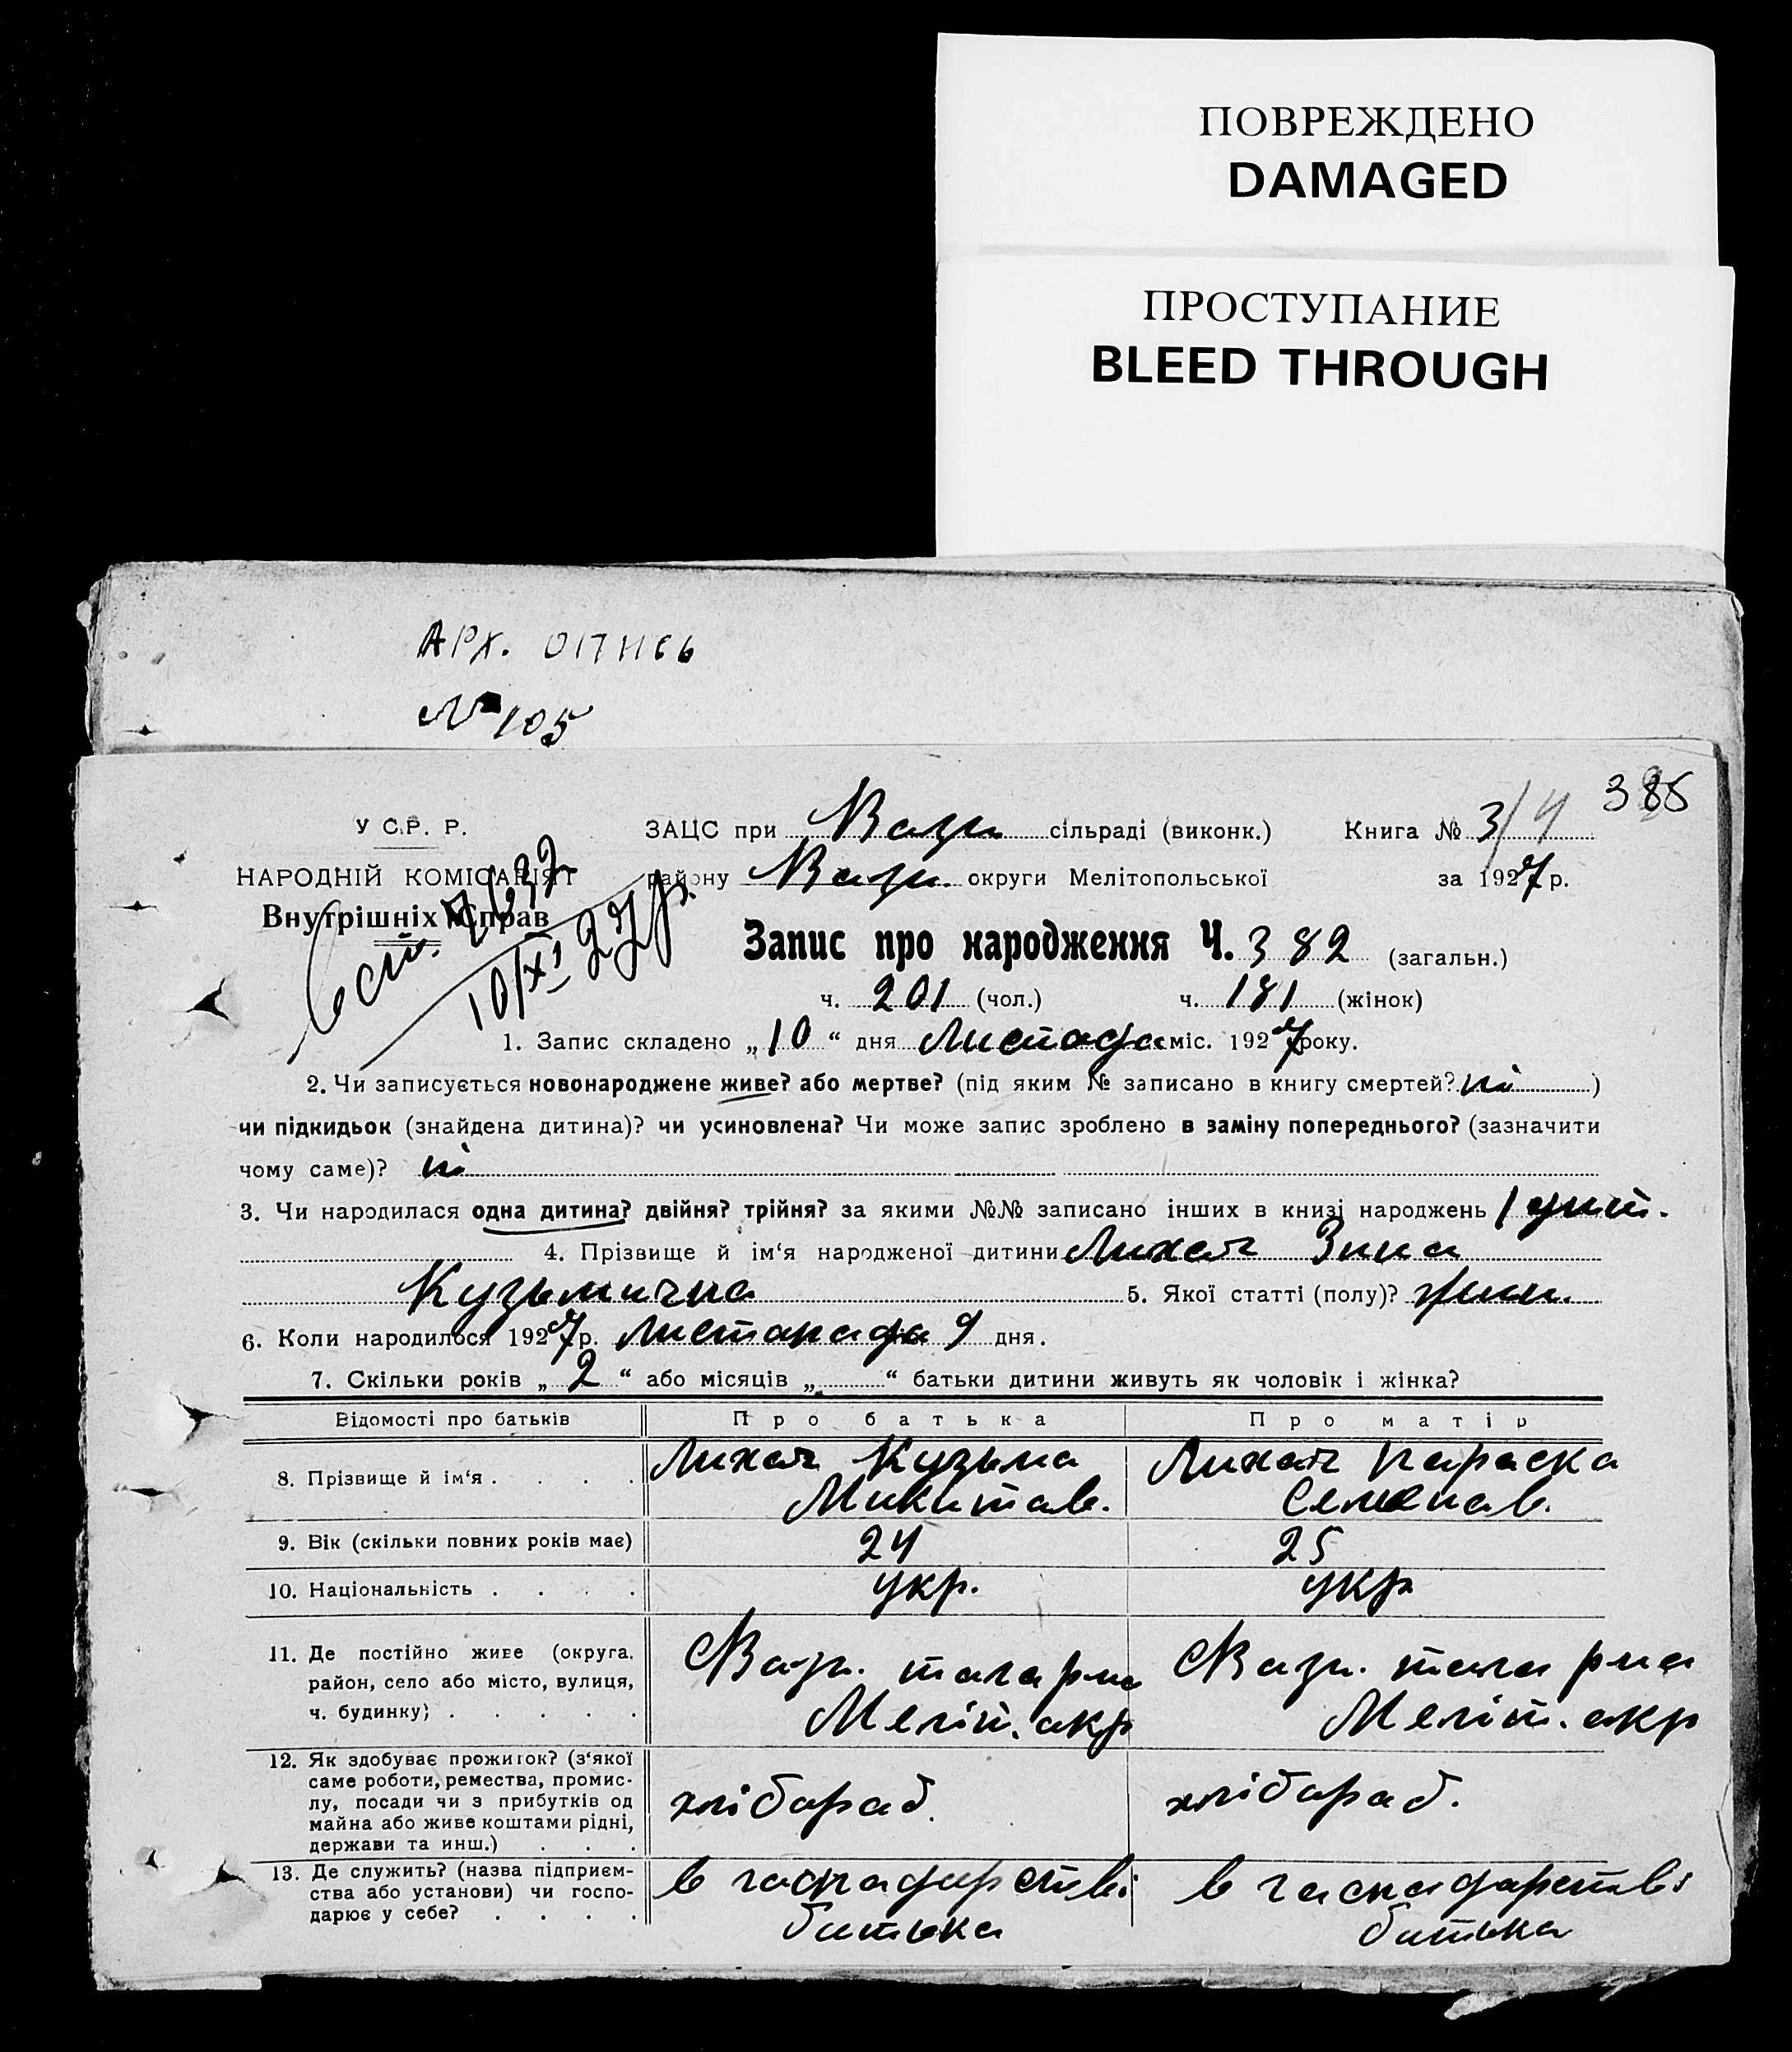 ПОВРЕЖДЕНО
DAMAGED
ПРОСТУПАНИЕ
BLEED THROUGH
АРХ. ОПИСЬ
№ 105
385
У С.Р. Р.
НАРОДНІЙ КОМІСАРІЯТ
Внутрішніх Справ
10/XI 27 р.
ЗАЦС при сільраді (виконк.) Книга № 3/4
району округи Мелітопольської за 1927 р.
Запис про народження Ч. 382 (загальн.)
ч. 201 (чол.) ч. 181 (жінок)
1. Запис складено „10“ дня Листопада міс. 1927 року.
2. Чи записується новонароджене живе? або мертве? (під яким № записано в книгу смертей? ні)
чи підкидьок (знайдена дитина)? чи усиновлена? Чи може запис зроблено в заміну попереднього? (зазначити
чому саме)? ні
3. Чи народилася одна дитина? двійня? трійня? за якими №№ записано інших в книзі народжень 1 дит.
4. Прізвище й ім‘я народженої дитини Лихач Зина
Кузьмична 5. Якої статті (полу)? жин.
6. Коли народилося 1927 р. Листопада 9 дня.
7. Скільки років „2“ або місяців „ “ батьки дитини живуть як чоловік і жінка?
Відомості про батьків Про батька Про матір
8. Прізвище й ім‘я . . . . Лихач Кузьма Лихач Параска
Микитов. Семенов.
9. Вік (скільки повних років має) 24 25
10. Національність . . . . укр. укр
11. Де постійно живе (округа,
район, село або місто, вулиця,
ч. будинку) . . . . .
Меліт. окр Меліт. окр
12. Як здобуває прожиток? (з‘якої
саме роботи, ремества, промис-
лу, посади чи з прибутків од
майна або живе коштами рідні,
держави та инш.) . . .
хлібороб. хлібороб.
13. Де служить? (назва підприєм-
ства або установи) чи госпо-
дарює у себе? . . . .
в господарстві в господарстві
батька батька